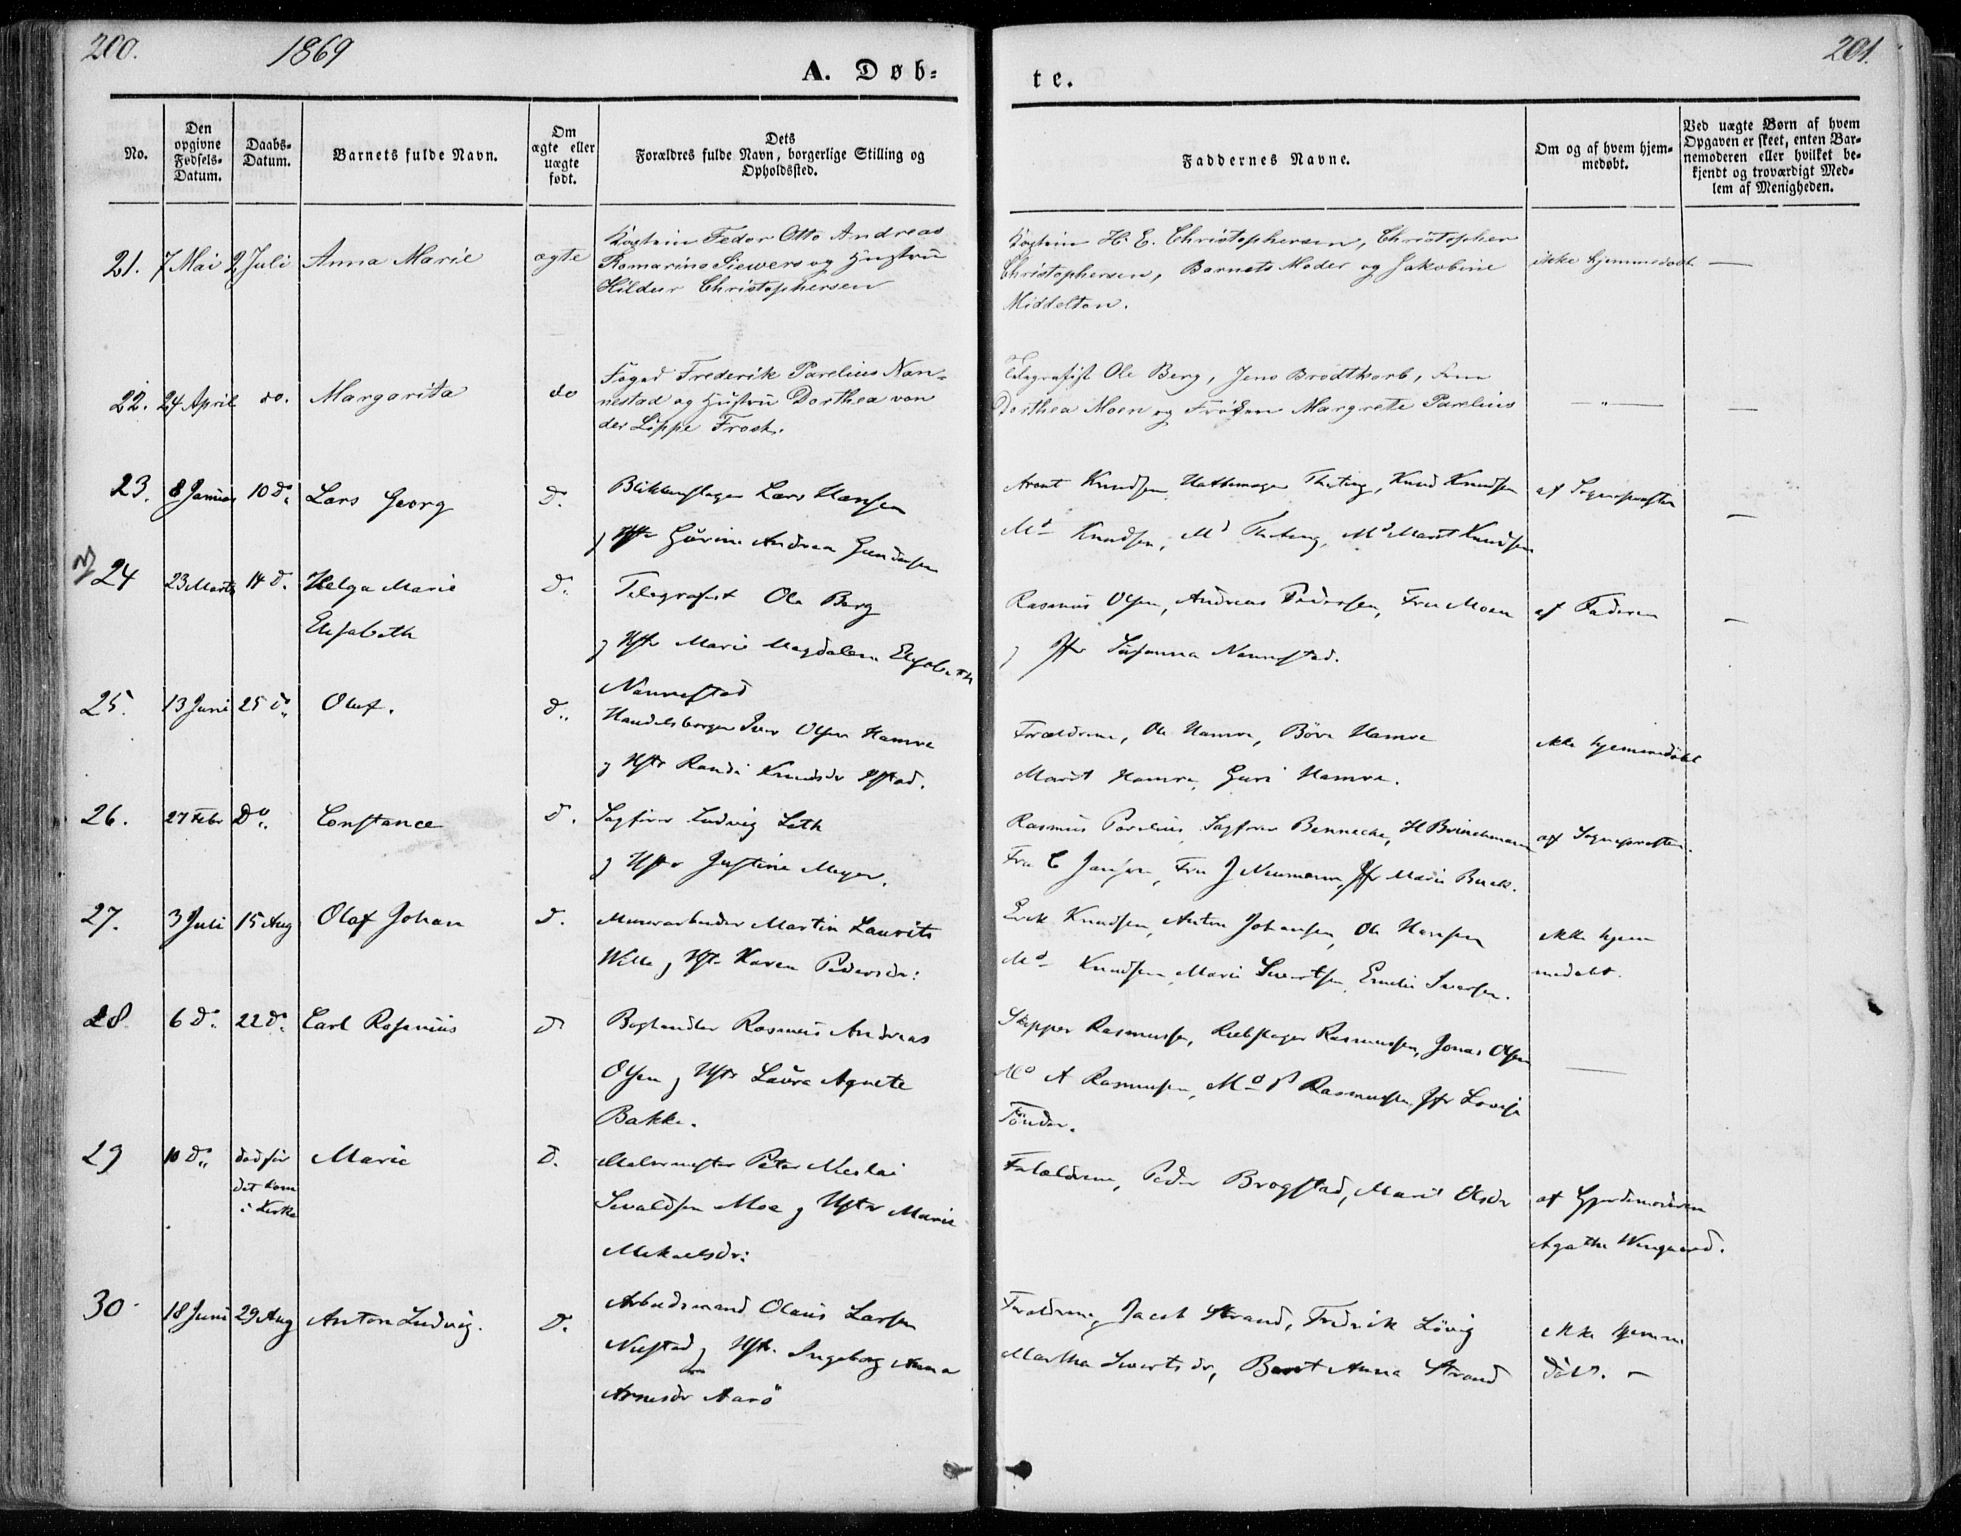 200.
1869
A. Døb=
te.
201.
No.
Den opgivne Fødsels-Datum.
Daabs-Datum.
Barnets fulde Navn.
Om ægte eller uægte født.
Dets Forældres fulde Navn, borgerlige Stilling og Opholdssted.
Faddernes Navne.
Om og af hvem hjem-medøbt.
Ved uægte Børn af hvem Opgaven er skeet, enten Bar-nemoderen eller hvilket be-kjendt og troværdigt Med-lem af Menigheden.
21. 7 Mai 2 Juli Anna Marie ægte
Kaptein Fedor Otto Andreas
Romarino Siewers og Hustru
Hildur Christophersen
Kaptein H. E. Christophersen, Christopher
Christophersen, Barnets Moder og Jakobine
Middelton.
ikke hjemmedøbt. —
22. 24 April do. Margarita do
Foged Frederik Parelius Nan=
nestad og Hustru Dorthea von
der Lippe Frost.
Telegrafist Ole Berg, Jens Brodtkorb, Frue
Dorthea Moen og Frøken Margrete Parelius
—"— —
23. 8 Januar 10 do. Lars Georg d.
Blikkenslager Lars Hansen
g Hstr Gurine Andrea Gundersen
Arent Knudsen, Hattemager Theting, Knud Knudsen
Md Knudsen, Md Theting, Md Marit Knudsen
af Sognepresten —
24 23 Marts 14 d. Helga Marie
Elisabeth
d.
Telegrafist Ole Berg
g Hstr Marie Magdalene Elisabeth
Nannestad
Rasmus Olsen, Andreas Pedersen, Frue Moen
g Jfr Susanna Nannestad.
af Faderen —
25. 13 Juni 25 do. Oluf. d.
Handelsborger Iver Olsen Hamre
g Hstr Randi Knudsdr Istad.
Forældrene, Ole Hamre, Børe Hamre
Marit Hamre, Guri Hamre.
ikke hjemmedøbt
26. 27 Febr Do. Constance d.
Sagfører Ludvig Leth
g Hstr Justine Meyer.
Rasmus Parelius, Sagfører Bennecke, H Brinchmann
Fru C Jansen, Fru J Neumann, Jfr Marie Buck.
af Sognepresten.
27. 3 Juli 15 Aug Olaf Johan d.
Murerarbeider Martin Laurits
Wille g Hstr Karen Pedersdr:
Erik Knudsen, Anton Johansen, Ole Hansen
Md Knudsen, Marie Sivertsen, Emelie Iversen.
ikke hjem
medøbt.
28. 6 do. 22 do. Carl Rasmus d
Boghandler Rasmus Andreas
Olsen g Hstr Laura Agnete
Bakke.
Skipper Rasmussen, Rebslager Rasmussen, Jonas Olsen
Md A Rasmussen, Md P Rasmussen, Jfr Lovise
Tønder.
—
29 10 do. død før
det kom
i Kirke
Marie d.
Malermester Peter Nicolai
Sivaldsen Moe g Hstr Marie
Mikaelsdr:
Forældrene, Peder Brogstad, Marit Olsdr
af Gjordemoderen
Agathe Wengaard.
30. 18 Juni 29 Aug Anton Ludvig. D.
Arbeidsmand Olaus Larsen
Nustad g Hstr. Ingeborg Anna
Arnesdr Aarø
Forældrene, Jacob Strand, Fredrik Løvig
Martha Sivertsdr, Berit Anna Strand
ikke hjemme
døbt. —